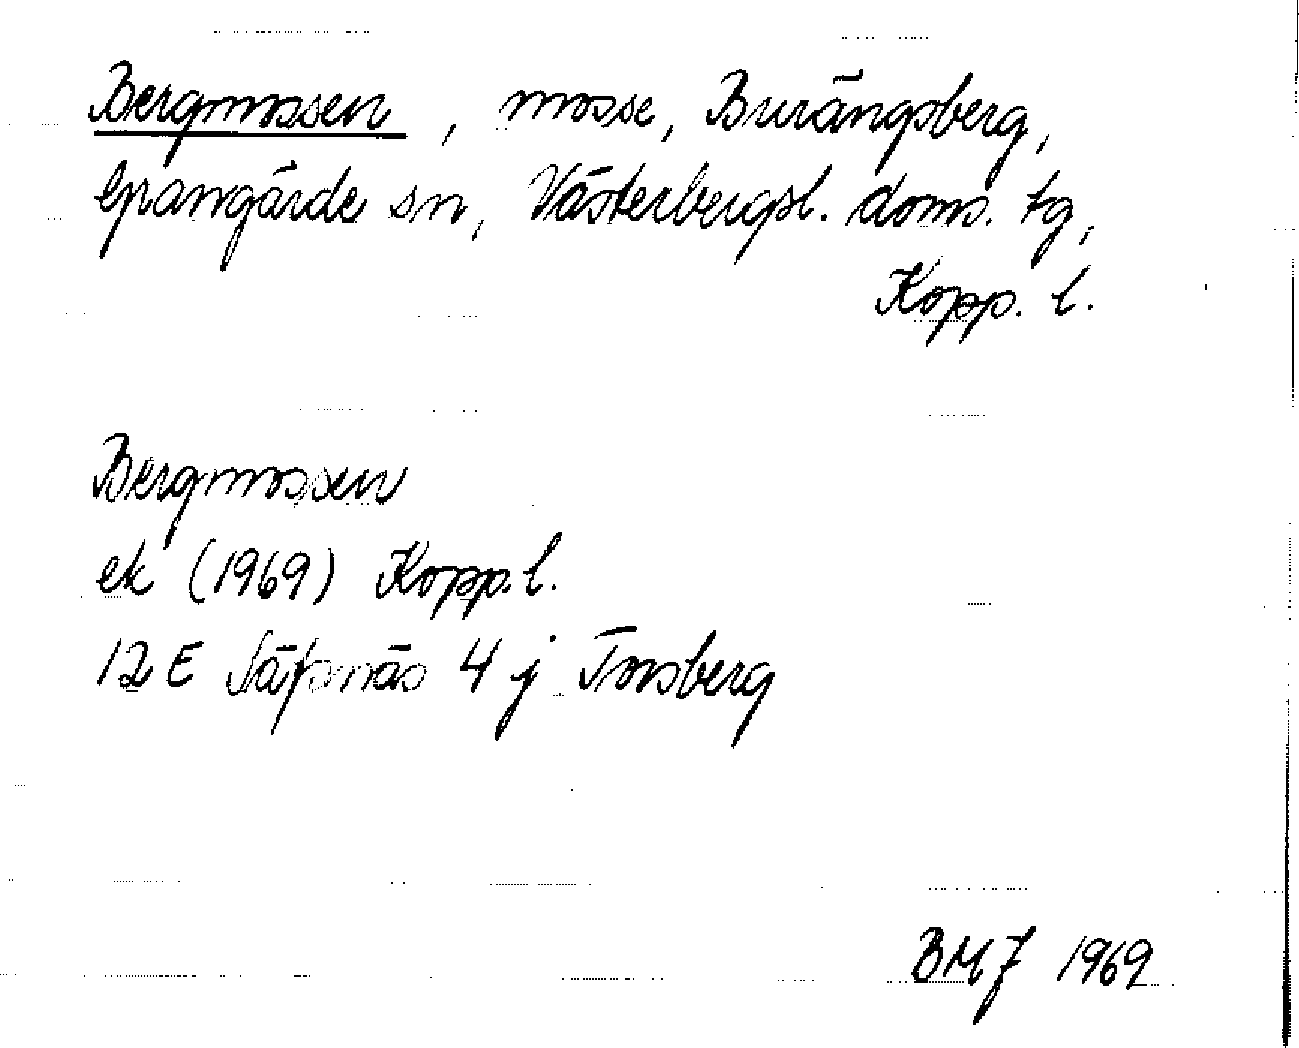 Bergmossen, mosse, Burängsberg,
Grangärde sn, Västerbergsl. doms. tg,
Kopp. l.
Bergmossen
ek (1969) Kopp. l.
12 E Säfsnäs 4 j Torsberg
BMJ 1969